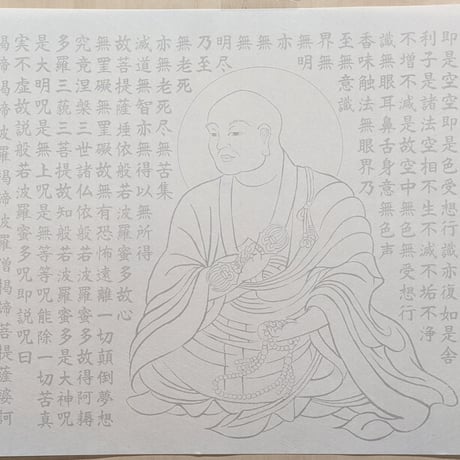 即是空空即是色受想行識亦復如是舍
利子是諸法空相不生不滅不垢不浄
不増不減是故空中無色無受想行
識無眼耳鼻舌身意無色声
香味触法無眼界乃
至無意識
界無
無明
亦
無
無
明尽
乃至
無老死
亦無老死尽無苦集
滅道無智亦無得以無所得
故菩提薩埵依般若波羅蜜多故心
無罣礙無罣礙故無有恐怖遠離一切顛倒夢想
究竟涅槃三世諸仏依般若波羅蜜多故得阿耨
多羅三藐三菩提故知般若波羅蜜多是大神呪
是大明呪是無上呪是無等等呪能除一切苦真
実不虚故説般若波羅蜜多呪即説呪曰
羯諦羯諦波羅羯諦波羅僧羯諦菩提薩婆訶